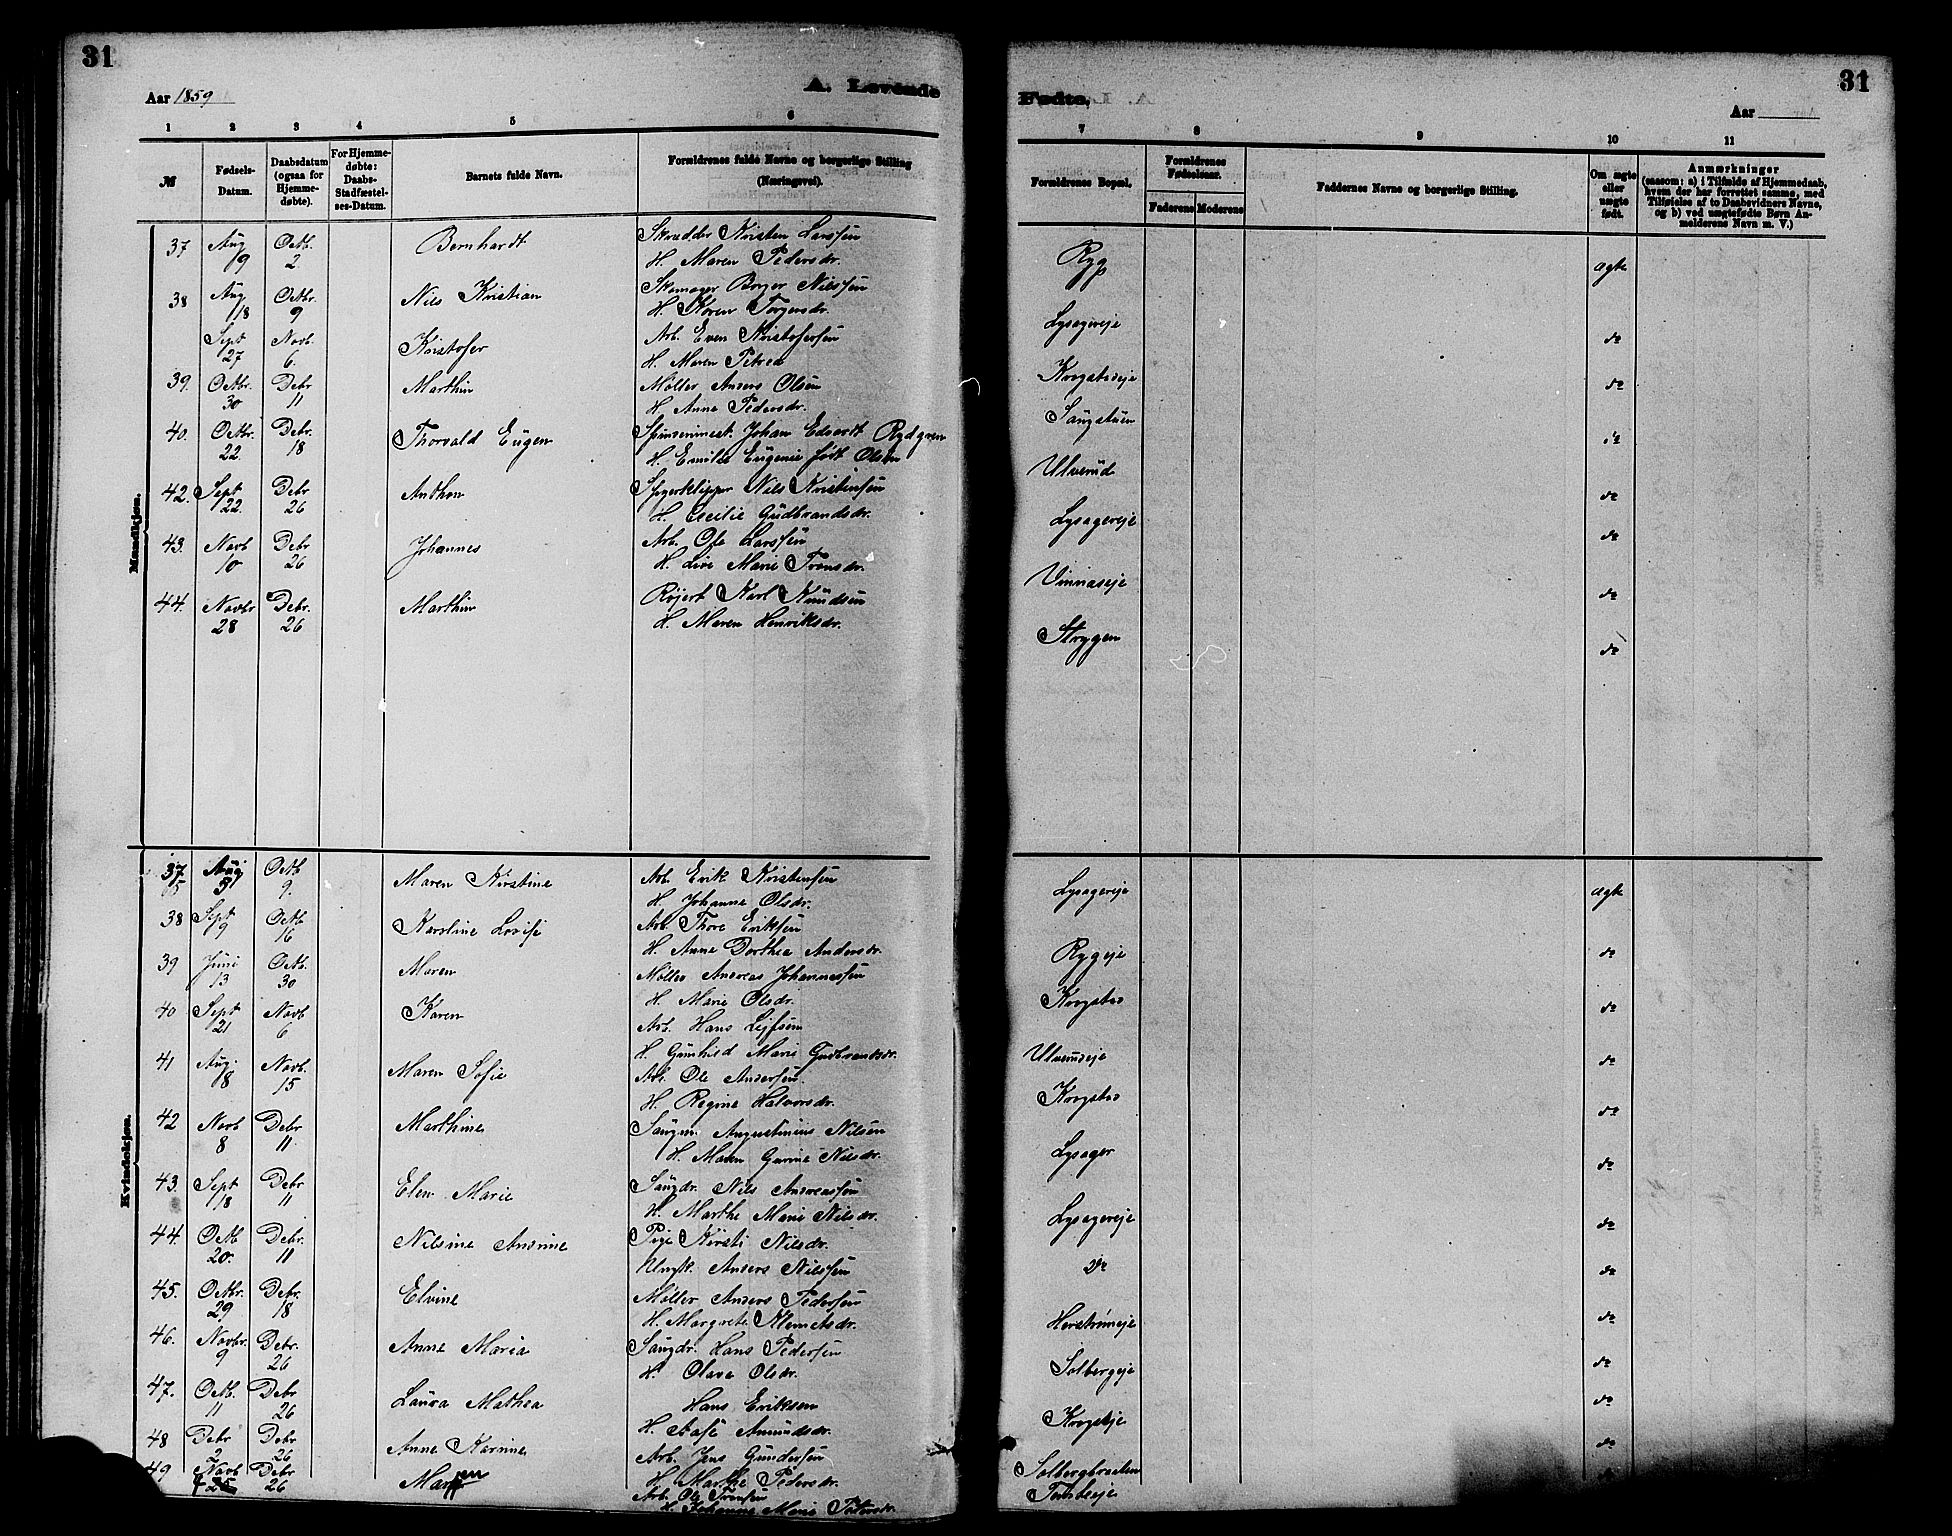 31
Aar 1859
A. Levende
1 2 3 4 5 6
№ Fødsels-Datum. Daabsdatum (ogsaa for Hjemmedøbte). For Hjemmedøbte: Daabs-Stadfæstelses-Datum. Barnets fulde Navn. Forældrenes fulde Navne og borgerlige Stilling (Næringsvei).
Mandkjøn.
37 Aug 19 Octb. 2 Bernhardt Skrædder Kristen Larssen
H. Maren Pedersdr.
38 Aug 18 Octbr. 9 Nils Kristian Skomager Borger Nilssen
H. Karen Torgersdr.
Sept 27 Novb. 6 Kristofer Arb. Even Kristofersen
H. Maren Petrea
39. Octbr. 30 Debr 11 Marthin Møller Anders Olsen
H. Anne Pedersdr.
40. Octbr. 22. Debr. 18 Thorvald Eugen Spinnemest. Johan Edvardt Rydgren
H. Emilie Eugenie født Olsen
42. Sept 22. Debr 26 Anthon Spigerklipper Nils Kristensen
H. Cecilie Gudbrandsdr.
43. Novb 10 Debr 26 Johannes Arb. Ole Larssen
H. Live Marie Tronsdr.
44. Novbr 28 Debr. 26 Marthin Røjert Karl Knudsen
H. Maren Henriksdr.
Kvindekjøn.
37 Aug 5 Octb 9. Maren Kirstine Arb. Erik Kristensen
H. Johanne Olsdr.
38 Sept 9 Octb. 16 Karoline Lovise Arb. Thore Eriksen
H. Anne Dorthea Andersdr.
39 Juni 13 Octb. 30 Maren Møller Andreas Johannessen
H. Marie Olsdr.
40 Sept 21 Novb 6 Karen Arb. Hans Lejfsen
H. Gunhild Marie Gudbrandsdr.
41 Aug. 18 Novb. 15 Maren Sofie Arb. Ole Andersen
H. Regine Halvorsdr.
42 Novb 8 Debr 11. Marthine Saugm. Augustinius Nilsen
H. Maren Gurine Nilsdr.
43. Sept 18 Debr 11 Elen Marie Saugdr. Nils Andreassen
H. Marthe Marie Nilsdr.
44. Octb 20. Debr. 11 Nilsine Andrine Pige Kirsti Nilsdr.
Ungk. Anders Nilssen
45. Octbr. 29 Debr. 18 Elvine Møller Anders Pedersen
H. Margrete Klemetsdr.
46. Novbr. 9 Debr. 26 Anne Maria Saugdr. Hans Pedersen
H. Olava Olsdr.
47. Octb. 11 Debr 26 Laura Mathea Hans Eriksen
H. Aase Amundsdr.
48 Debr 2 Debr 26 Anne Karine Arb. Jens Gundersen
H. Marthe Pedersdr.
49 Novb 25 Debr 26 Arb. Ole Tronsen
H. Johanne Marie Pedersdr.
31
Fødte.
Aar
7 8 9 10 11
Forældrenes Bopæl. Forældrenes Fødselsaar. Faderens Moderens Faddernes Navne og borgerlige Stilling. Om ægte eller uægte født. Anmærkninger (saasom: a) i Tilfælde af Hjemmedaab, hvem der har forrettet samme, med Tilføielse af to Daabsvidners Navne, og b) ved uægtefødte Børn Anmelderens Navn m. V.)
Ryg ægte
Lysagereje do
Krogstadeje do
Saugstuen do
Ulverud do
Lysagereje do
Vinnaseje do
Strygen do
Lysagereje ægte
Rygeje do
Krogstad do
Ulverudeje do
Krogstad do
Lysager do
Lysagereje do
do do
do
Solbergeje do
Krogsteje do
Solbergbraaten do